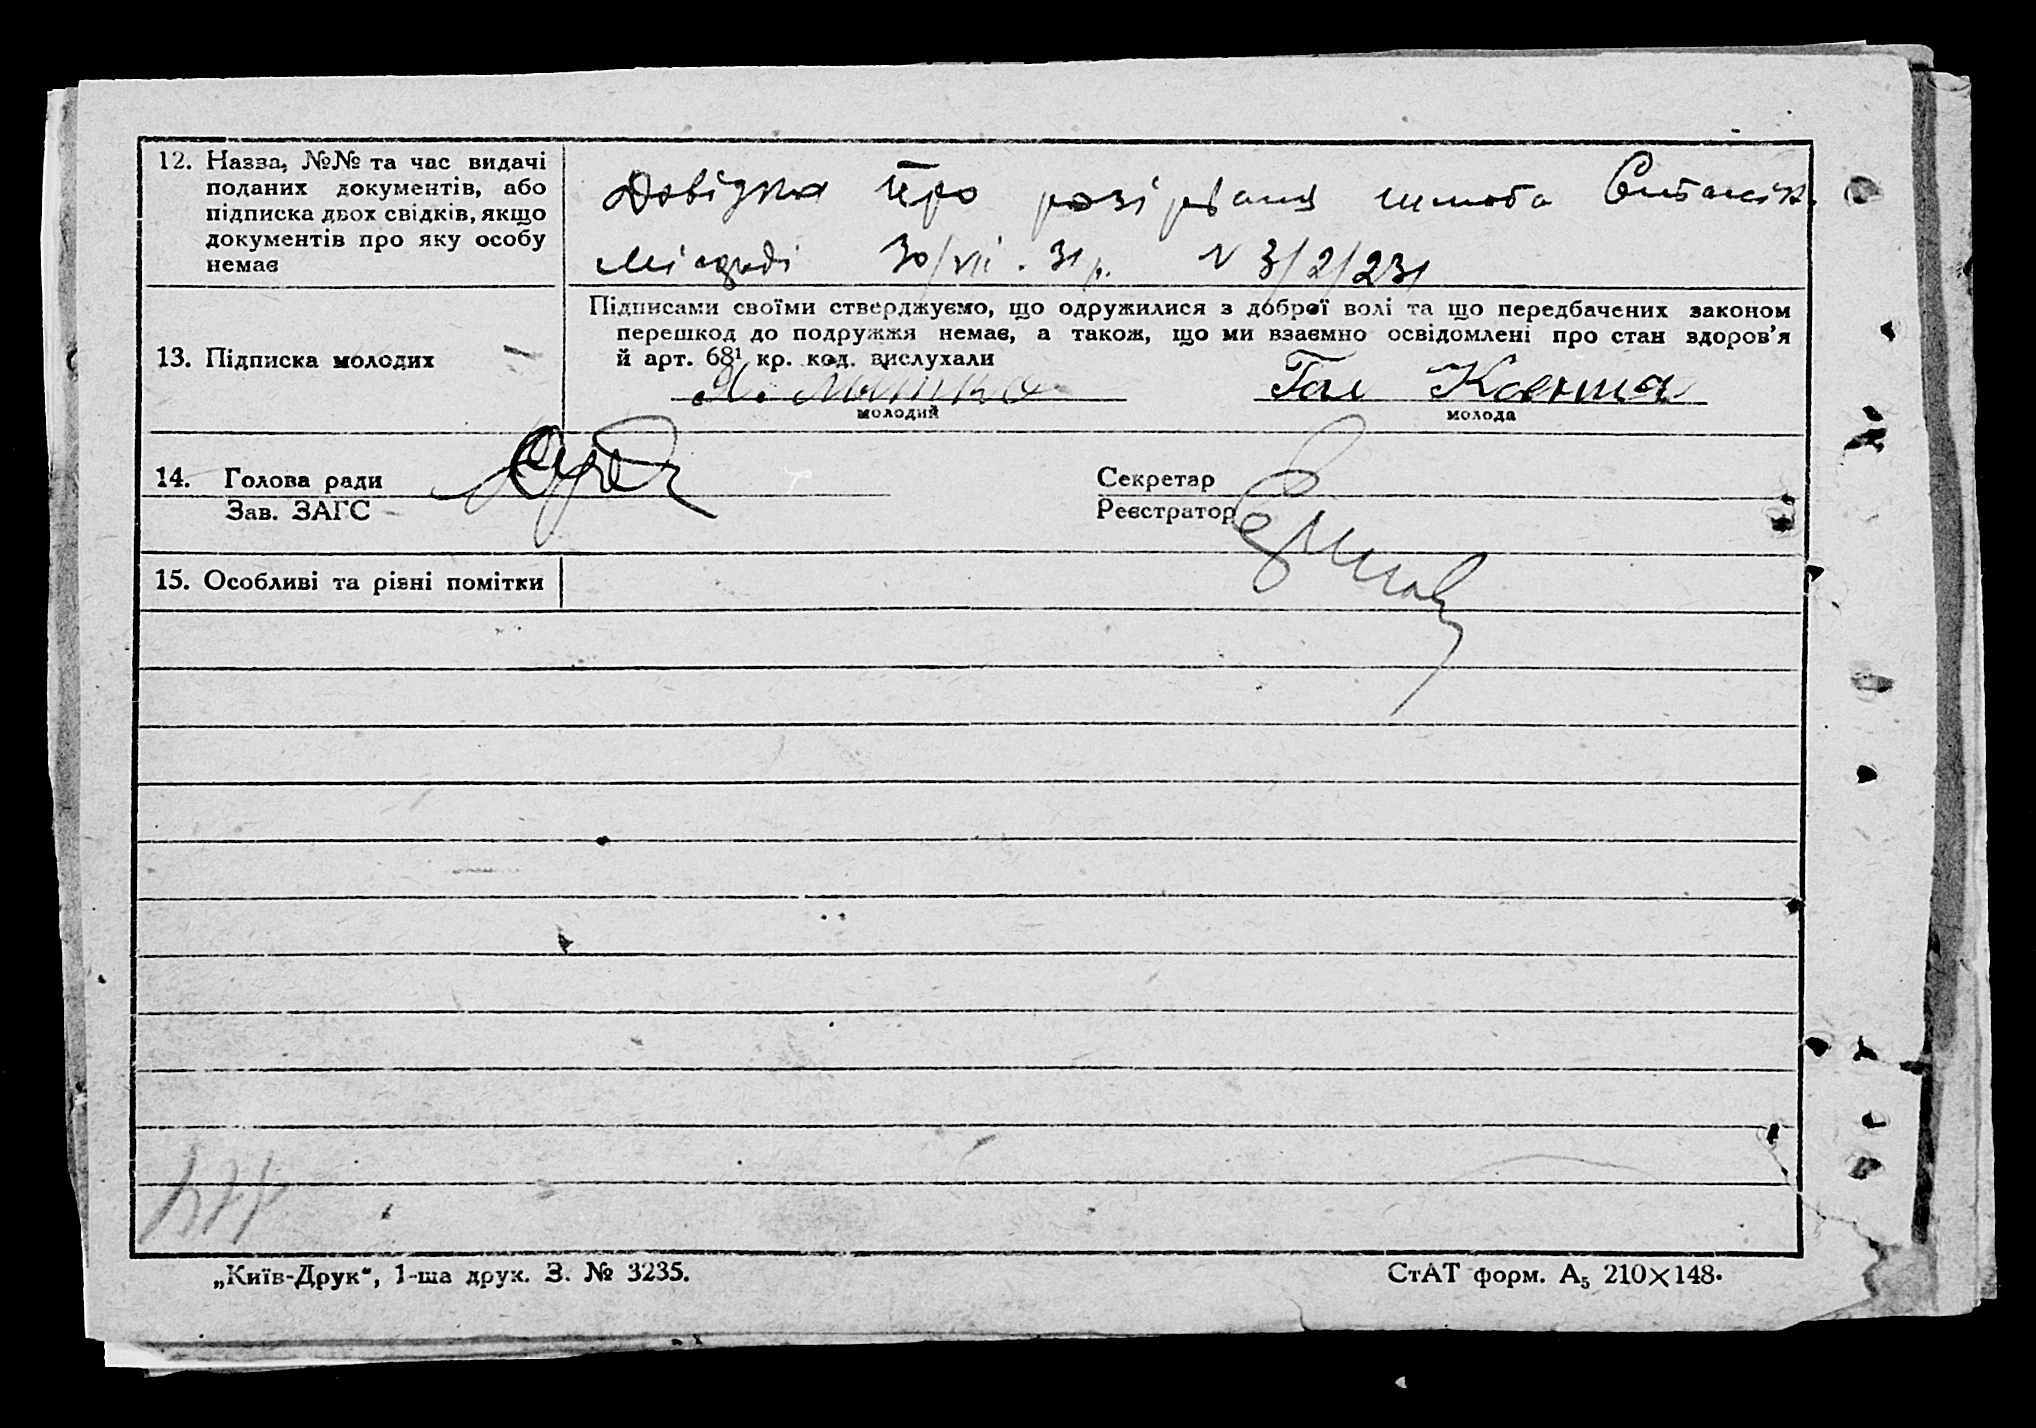 12. Назва, №№ та час видачі
поданих документів, або
підписка двох свідків, якщо
документів про яку особу
немає
Довідка про розірвання шлюба
Міськраді 30/VII. 31 р. N 3/2/231
13. Підписка молодих
Підписами своїми стверджуємо, що одружилися з доброї волі та що передбачених законом
перешкод до подружжя немає, а також, що ми взаємно освідомлені про стан здоров'я
й арт. 68¹ кр. код. вислухали
Гал
молодий
молода
14. Голова ради
Секретар
Зав. ЗАГС
Реєстратор
15. Особливі та різні помітки
„Київ-Друк“, 1-ша друк. З. № 3235.
СтАТ форм. А₅ 210×148.